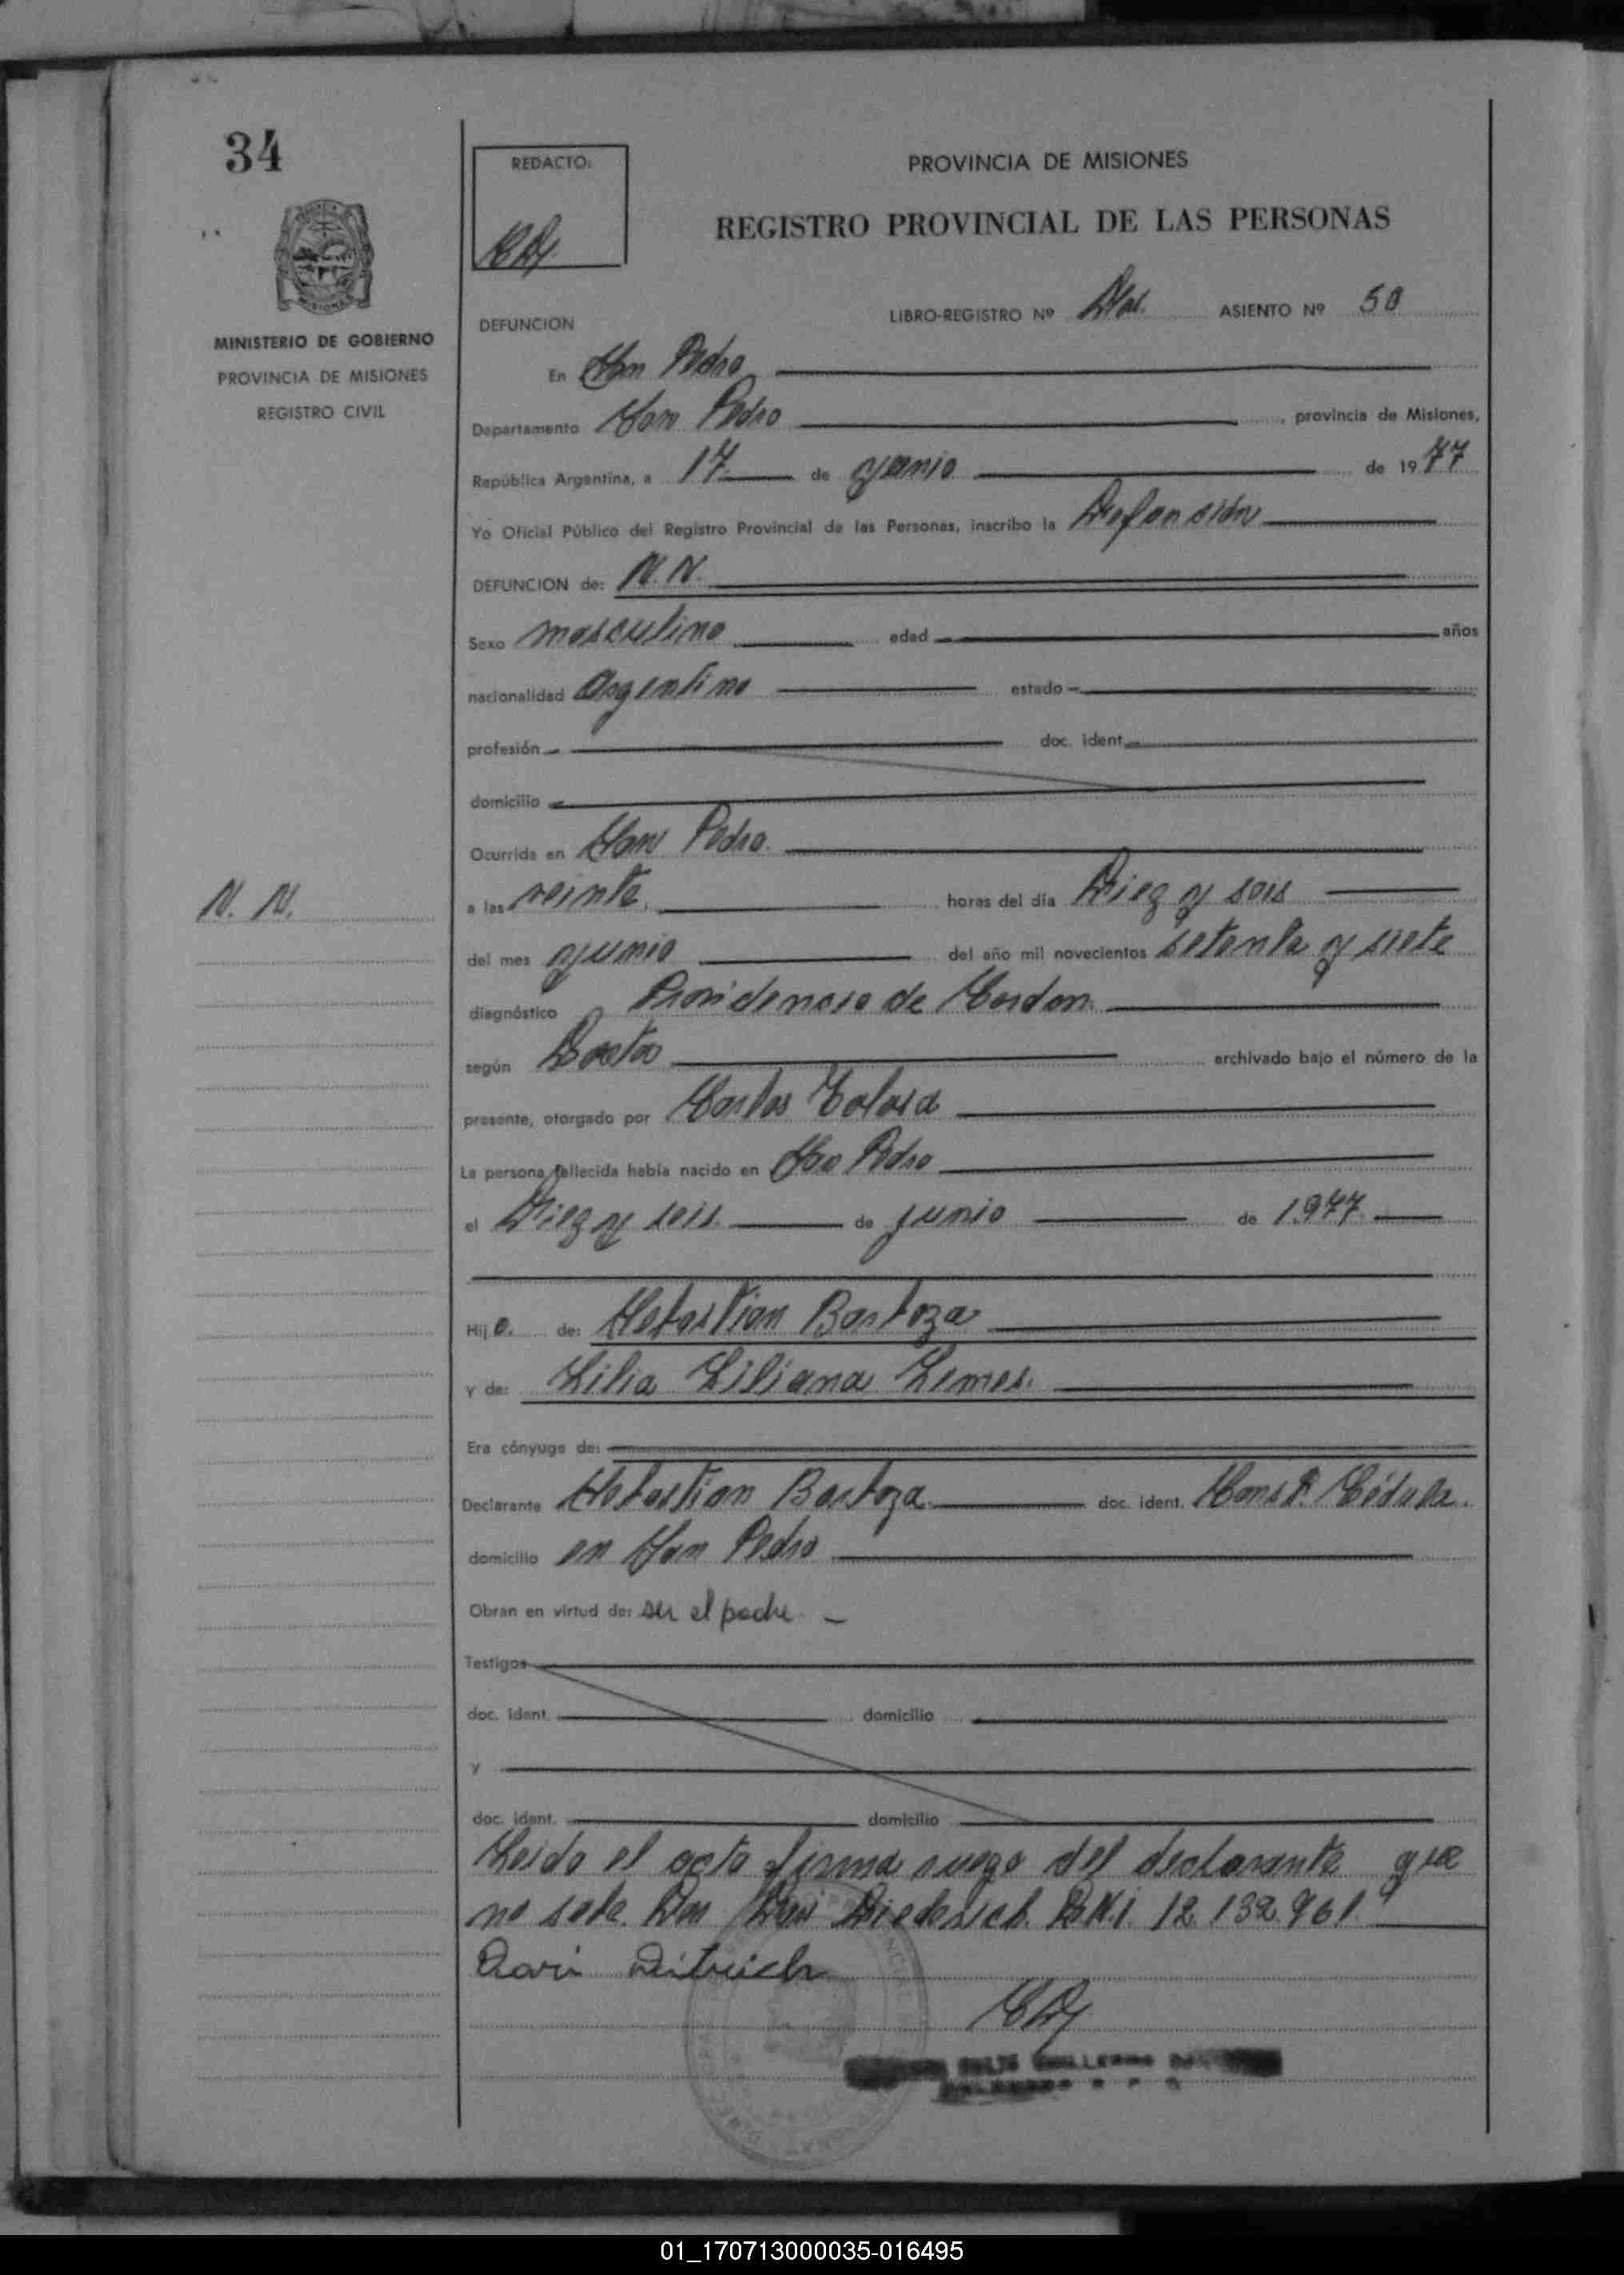 34
REDACTO:
PROVINCIA DE MISIONES
REGISTRO PROVINCIAL DE LAS PERSONAS
MINISTERIO DE GOBIERNO
PROVINCIA DE MISIONES
REGISTRO CIVIL
LIBRO-REGISTRO Nº ASIENTO Nº 50
DEFUNCION
En San Pedro
Departamento San Pedro, provincia de Misiones,
República Argentina, a 17 de junio de 1977
Yo Oficial Público del Registro Provincial de las Personas, inscribo la Defunsión
DEFUNCION de: N.N.
Sexo masculino edad años
nacionalidad Argentino estado
profesión doc. ident.
domicilio
Ocurrida en San Pedro
N. N.
a las veinte horas del día Diez y seis
del mes junio del año mil novecientos setenta y siete
diagnóstico de Cordon
según archivado bajo el número de la
presente, otorgado por Carlos
La persona fallecida había nacido en San Pedro
el Diez y seis de junio de 1.977
Hijo. de: Sebastian Barboza
y de: Lilia Liliana Lemes.
Era cónyuge de:
Declarante Sebastian Barboza doc. ident. Const. Cédula.
domicilio en San Pedro
Obran en virtud de: ser el padre
Testigos
doc. ident. domicilio
y
doc. ident. domicilio
Leido el acta firma ruego del declarante que
no sabe Don Diederich D.N.I. 12.132.961
Ditrich
01_170713000035-016495